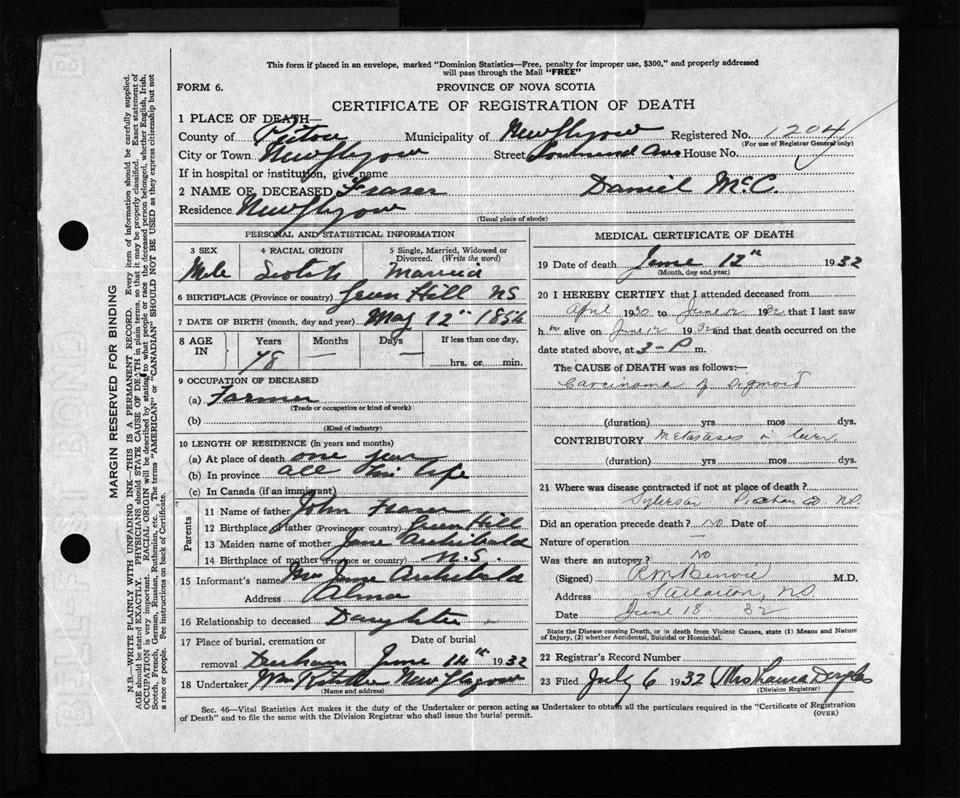 This form if placed in an envelope, marked "Dominion Statistics—Free, penalty for improper use, $300," and properly addressed
will pass through the Mail "FREE"
FORM 6.
PROVINCE OF NOVA SCOTIA
CERTIFICATE OF REGISTRATION OF DEATH
1 PLACE OF DEATH—
County of Pictou Municipality of New Glasgow Registered No. 1204
(For use of Registrar General only)
City or Town New Glasgow Street Ave House No.
If in hospital or institution, give name
2 NAME OF DECEASED Fraser Daniel McC.
Residence New Glasgow
(Usual place of abode)
PERSONAL AND STATISTICAL INFORMATION
3 SEX 4 RACIAL ORIGIN 5 Single, Married, Widowed or Divorced. (Write the word)
Male Scotch Married
6 BIRTHPLACE (Province or country) Green Hill NS
7 DATE OF BIRTH (month, day and year) May 12th 1854
8 AGE IN Years Months Days If less than one day,
78 — — hrs. or min.
9 OCCUPATION OF DECEASED
(a) Farmer
(Trade or occupation or kind of work)
(b)
(Kind of industry)
10 LENGTH OF RESIDENCE (in years and months)
(a) At place of death one year
(b) In province all his life
(c) In Canada (if an immigrant)
Parents
11 Name of father John Fraser
12 Birthplace of father (Province or country) Green Hill
13 Maiden name of mother Jane Archibald
14 Birthplace of mother (Province or country) N.S.
15 Informant's name Mrs Jane Archibald
Address Alma
16 Relationship to deceased Daughter
17 Place of burial, cremation or removal Date of burial
Durham June 14th 1932
18 Undertaker Wm New Glasgow
(Name and address)
MEDICAL CERTIFICATE OF DEATH
19 Date of death June 12th 1932
(Month, day and year)
20 I HEREBY CERTIFY that I attended deceased from
April 1930 to June 12 1932 that I last saw
him alive on June 12 1932 and that death occurred on
date stated above, at 3-P m.
The CAUSE of DEATH was as follows:—
Carcinoma of Sigmoid
(duration) yrs mos dys.
CONTRIBUTORY Metastases in liver
(duration) yrs mos dys.
21 Where was disease contracted if not at place of death?
N.S.
Did an operation precede death? No Date of
Nature of operation —
Was there an autopsy? No
(Signed) M.D.
Address Stellarton, NS.
Date June 18. 32
State the Disease causing Death, or in death from Violent Causes, state (1) Means and Nature
of Injury, (2) whether Accidental, Suicidal or Homicidal.
22 Registrar's Record Number
23 Filed July 6 1932 Mrs Laura
(Division Registrar)
Sec. 46—Vital Statistics Act makes it the duty of the Undertaker or person acting as Undertaker to obtain all the particulars required in the "Certificate of Registration
of Death" and to file the same with the Division Registrar who shall issue the burial permit.
(OVER)
MARGIN RESERVED FOR BINDING
N.B.—WRITE PLAINLY WITH UNFADING INK—THIS IS A PERMANENT RECORD. Every item of information should be carefully supplied.
AGE should be stated EXACTLY. PHYSICIANS should STATE CAUSE OF DEATH in plain terms, so that it may be properly classified. Exact statement of
OCCUPATION is very important. RACIAL ORIGIN will be described by stating to what people or race the deceased person belonged, whether English, Irish,
Scotch, French, German, Russian, Ruthenian, etc. The terms "AMERICAN" or "CANADIAN" SHOULD NOT BE USED as they express citizenship but not
a race or people. See instructions on back of Certificate.